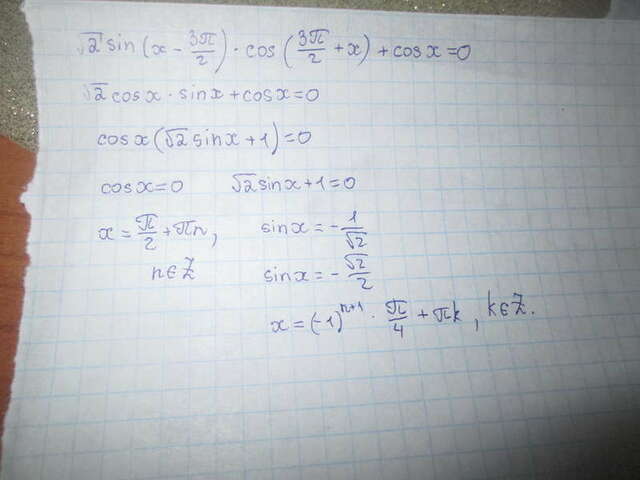 √2 sin(x - 3π/2) · cos(3π/2 + x) + cosx = 0
√2 cosx · sinx + cosx = 0
cosx(√2 sinx + 1) = 0
cosx = 0 √2 sinx + 1 = 0
x = π/2 + πn, sinx = -1/√2
n∈Z sinx = -√2/2
x = (-1)^(n+1) · π/4 + πk, k∈Z.